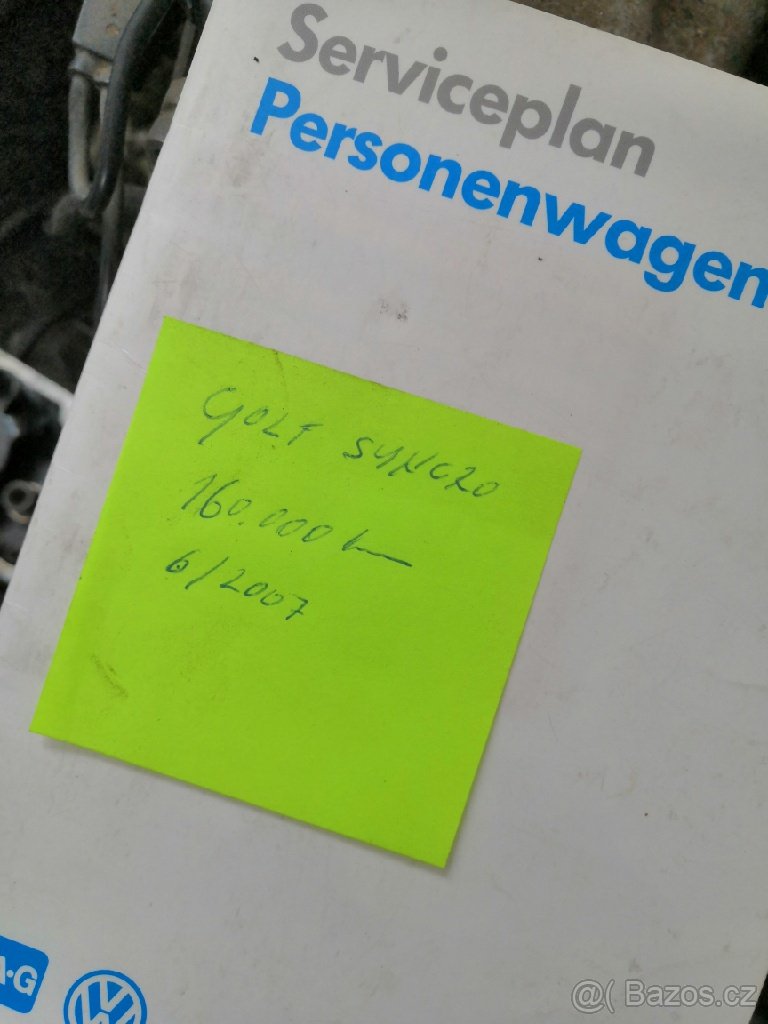 Serviceplan
Personenwagen
GOLF SYNCRO
160.000 km
6/2007
A·G
VW
@( Bazos.cz